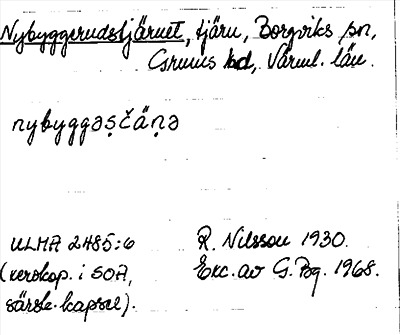 Nybyggerudstjärnet, tjärn, Borgviks sn,
Grums hd, Värml. län.
nybyggəṣčäṇə
ULMA 2485:6 R. Nilsson 1930.
(xeroxkop. i SOA, Exc. av G. Bg. 1968.
särsk. kapsel).